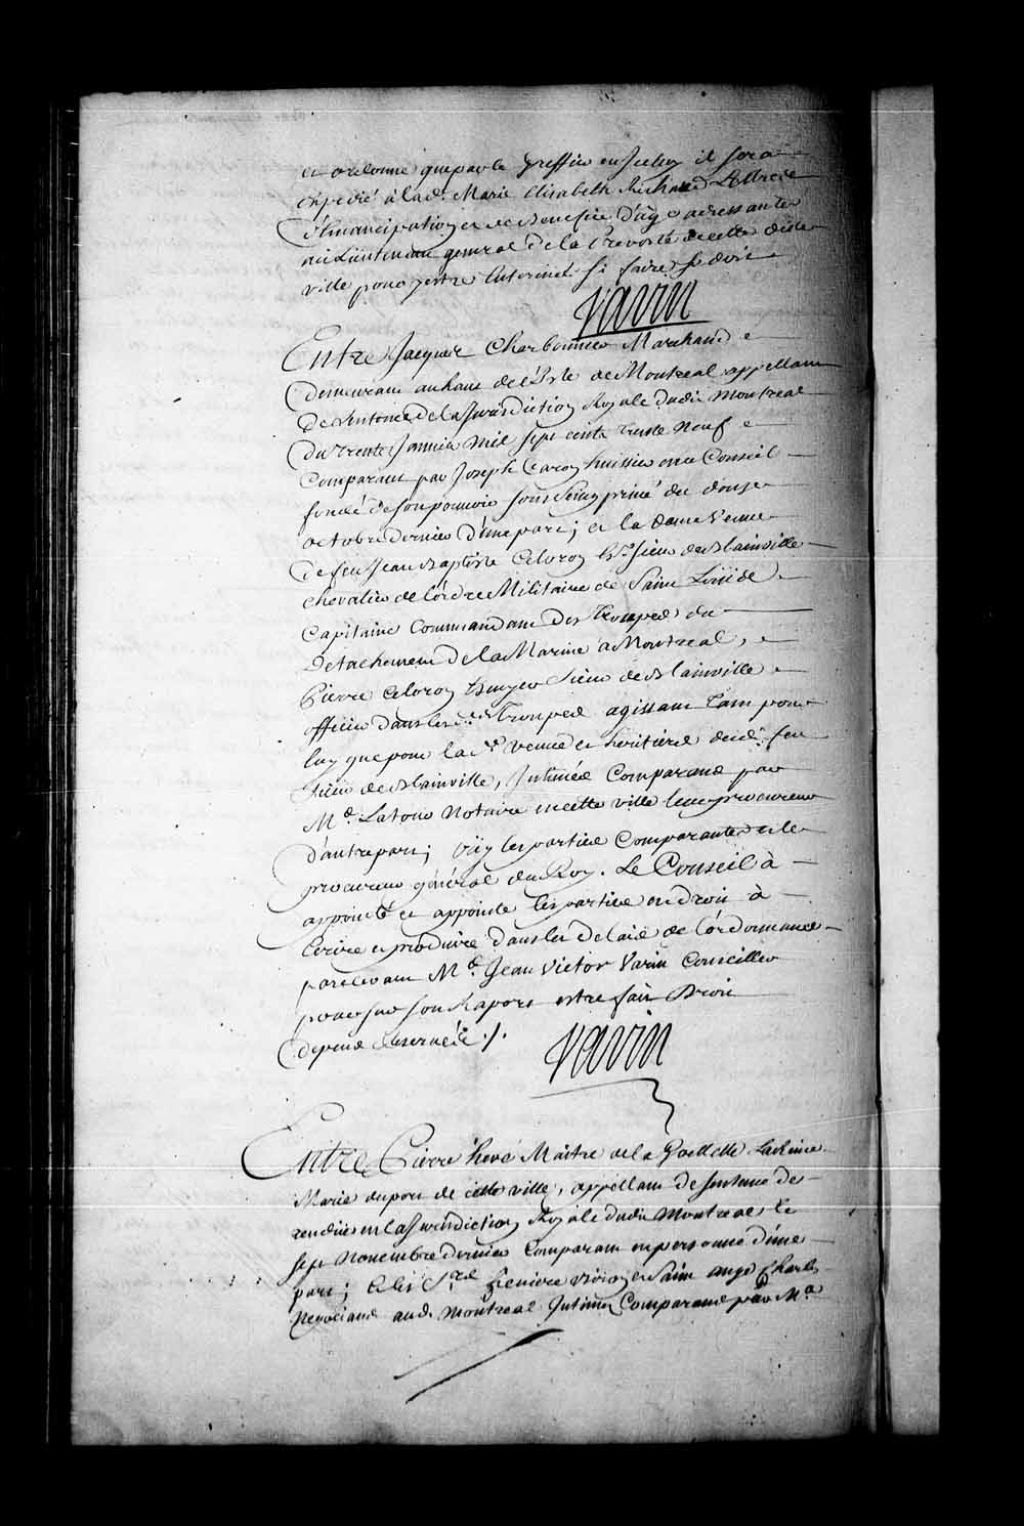 et ordonne que par le greffier en Iceluy il sera
expedié à lad. Marie Elisabeth Richard Lettres
d'Emancipation et de Benefice d'age adressante
au Lieutenant general de la Prevosté de cette dite
ville pour y estre Enterinées si faire se doit
Varin
Entre Jacques Charbonnier Marchand
demeurant au haut de l'Isle de Montreal appellant
de Sentence de la Jurisdiction Royale dudit Montreal
du trente Janvier mil sept cents trente neuf
Comparant par Joseph Caron huissier en ce Conseil
fondé de son pouvoir sous seing privé du douze
octobre dernier d'une part; et la dame veuve
de feu Jean Baptiste Celoron Er. Sieur de Blainville
chevalier de l'ordre Militaire de Saint Loüis
Capitaine Commandant des Trouppes du
Detachement de la Marine à Montreal,
Pierre Celoron Ecuyer Sieur de Blainville
officier dans lesd. Trouppes agissant tant pour
luy que pour lad. veuve et heritiers dud. feu
Sieur de Blainville, Intimés Comparans par
Me. Latour Notaire en cette ville leur procureur
d'autre part; oüy les parties Comparantes et le
procureur général du Roy. Le Conseil à
appointé et appointe les parties en droit à
Ecrire et produire dans les delais de l'ordonnance
pardevant Me. Jean Victor Varin Conseiller
pour sur son Raport estre fait Droit
depens reservés ./.
Varin
Entre Pierre hevé Maitre de la Goellette
Marie du port de cette ville, appellant de sentences
rendües en la Jurisdiction Royale dudit Montreal le
sept Novembre dernier Comparant en personne d'une
part; et les Srs. et Saint ange Charly
Negocians aud. Montreal Intimés Comparans par Me